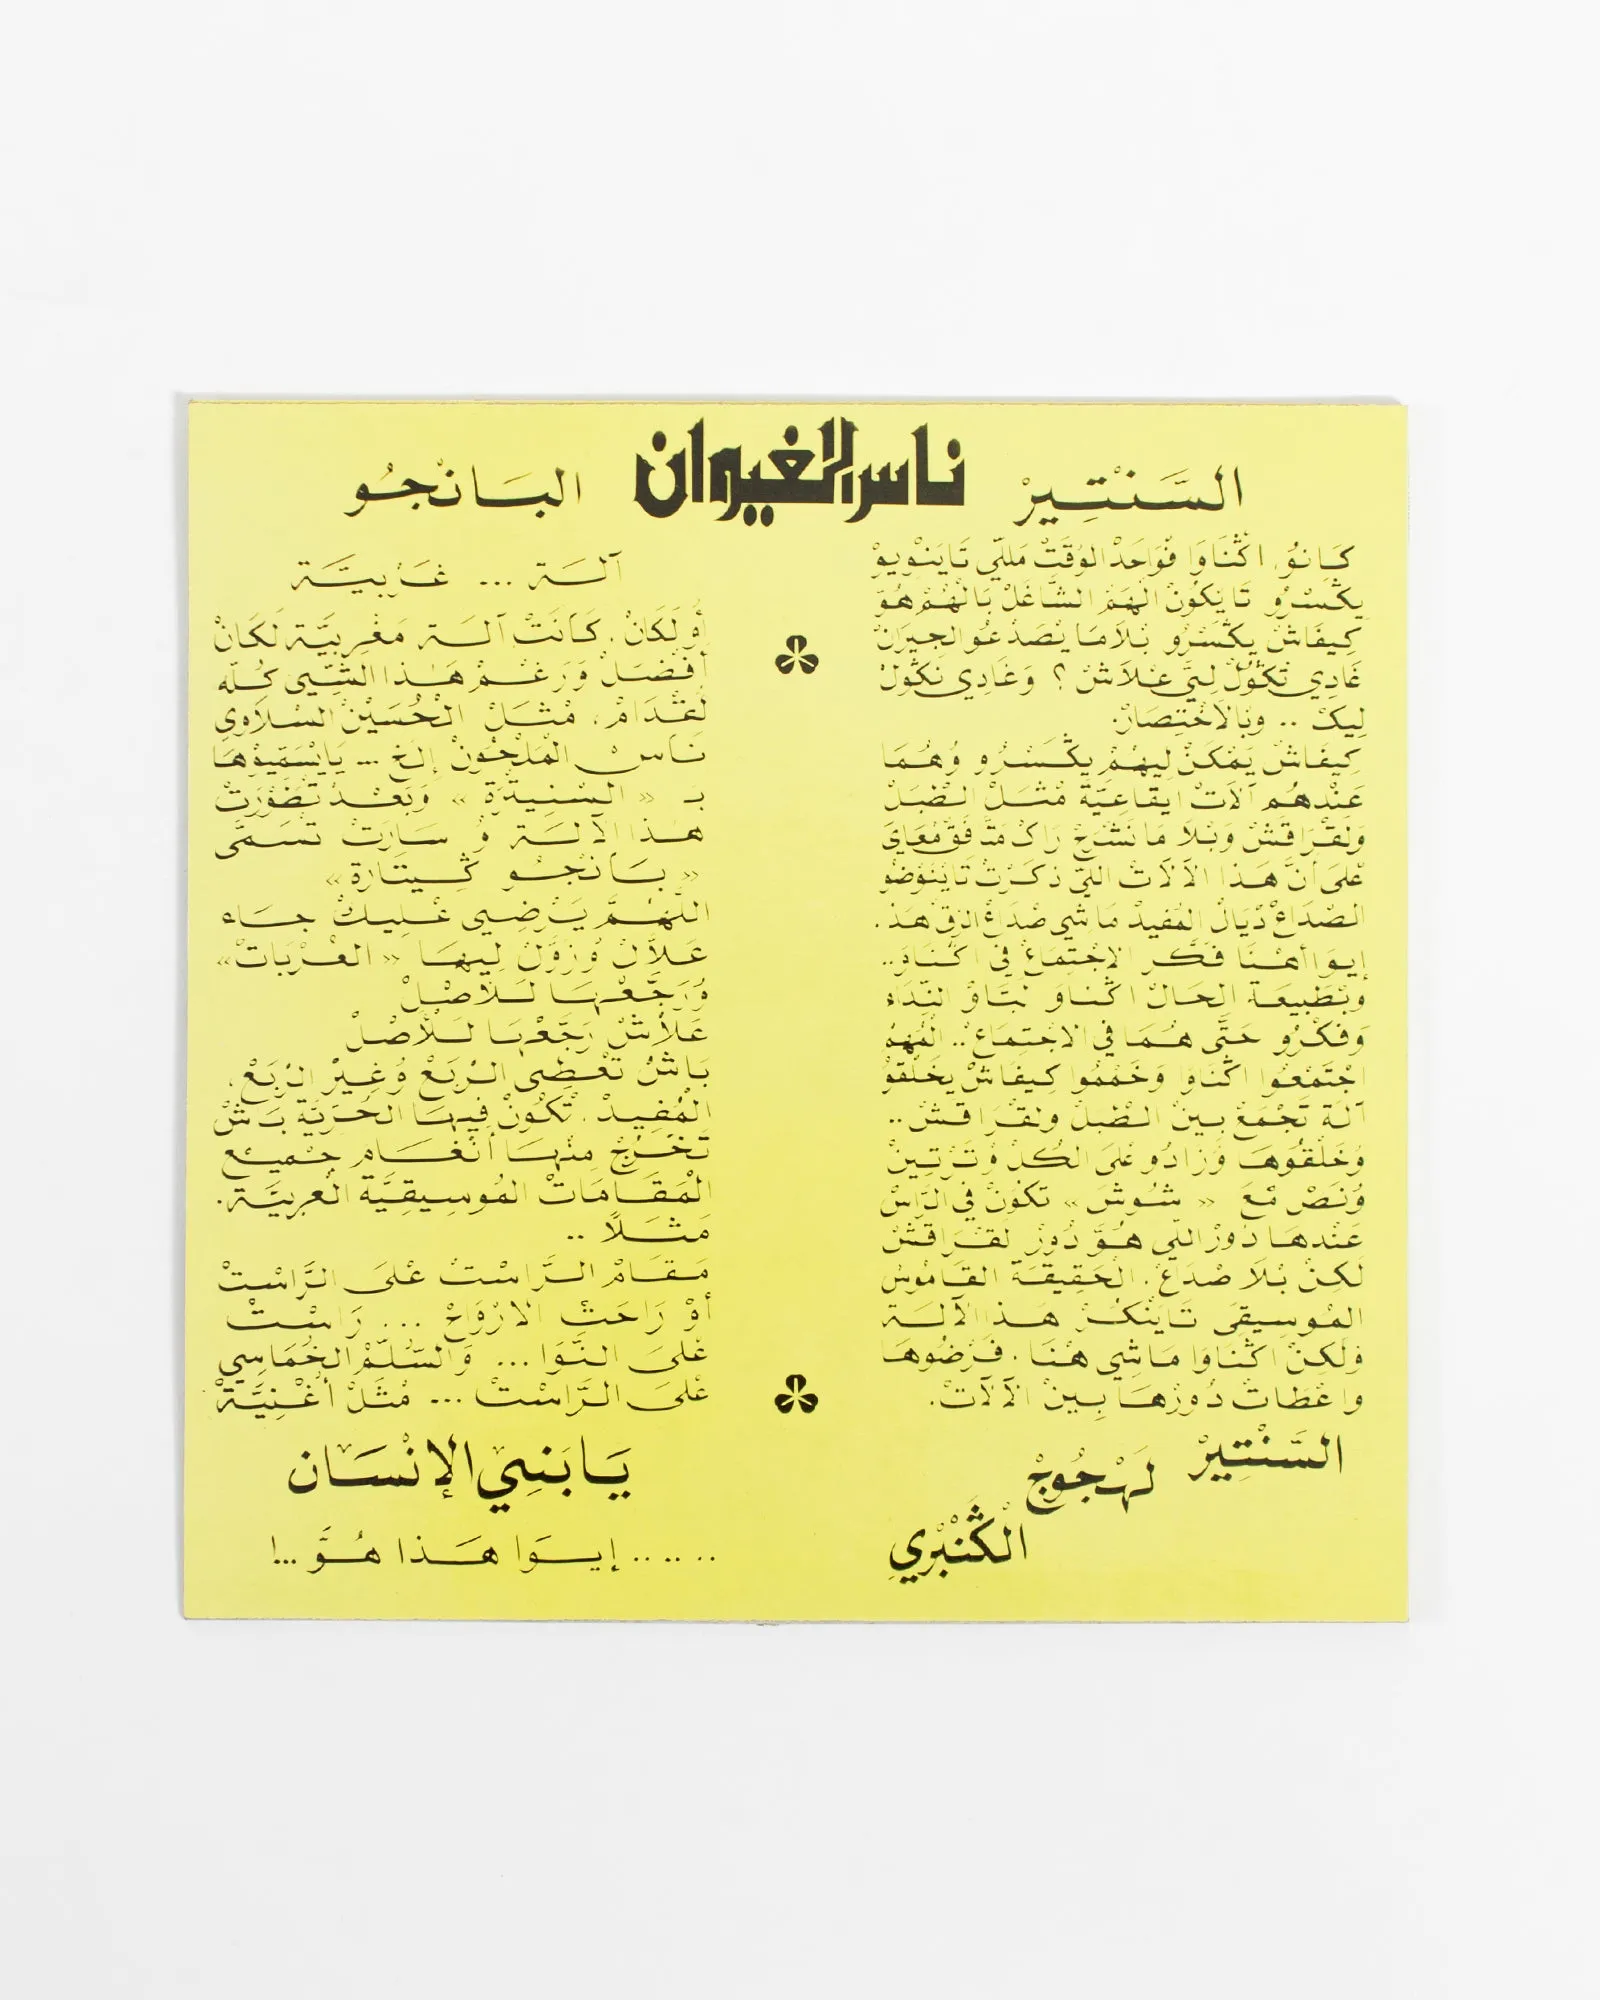 ناس الغيوان
السَّنْتِيرْ
كَانُو اڭْنَاوَا فْوَاحَدْ الوَقَتْ مَللّي تَايَنْوِيوْ
يڭَسْرُو تَا يَكُونْ الْهَمْ الشَّاغَلْ بَالْهُمْ هُوَّ
كِيفَاشْ يڭَسْرُو بْلَامَا يْصَدْعُو الجِيرَانْ
غَادِي تڭُولْ لِيَّ عْلَاشْ ؟ وَغَادِي نڭُولْ
لِيكْ .. وَبِالْاخْتِصَارْ.
كِيفَاشْ يَمْكَنْ لِيهُمْ يڭَسْرُو وُهُمَا
عَنْدهُم آلَاتْ ايقَاعِيَّة مْثَلْ الطْبَلْ
وَلَقْرَاقَشْ وَبْلَا مَا نَشْرَحْ رَاكْ مَتَّفَقْ مْعَايَ
عْلَى أنَّ هَذَا الآلَاتْ اللّي ذكَرْتْ تَايْنَوْضُو
الصْدَاعْ دْيَالْ المُفِيدْ مَاشي صْدَاعْ الزِقْ هَذ.
إيوَا أهْنَا فَكَّر الاجْتِمَاعْ في اڭْنَاوَ..
وَبْطَبِيعَةْ الحَالْ اڭْنَاوَ نبَّاوْ النِّدَاء
وَفكْرُو حَتَّى هُمَا في الاجْتِمَاعْ .. الْمُهِمْ
اجْتَمْعُوا اڭْنَاوَا وَخَمْمُوا كِيفَاشْ يخَلْقُوْ
آلَة تَجْمَعْ بِينْ الطْبَلْ ولَقْرَاقَشْ..
وُخَلْقُوهَا وُزَادُو عْلَى الكُلْ وْتَرْتِينْ
وُنَصْ مْعَ « شُوشَ » تكُونْ في الرَّاسْ
عَنْدهَا دَوْرْ اللّي هُوَّ دُوْرْ لَقْرَاقَشْ
لَكِنْ بْلَا صْدَاعْ. الحَقِيقَة القَامُوسْ
المُوسِيقِي تَايَنْكُرْ هَذا الآلَة
وَلكِنْ اڭْنَاوَا مَاشي هْنَا. فَرْضُوهَا
وَاعْطَاتْ دُورْهَا بِينْ الآلَاتْ.
السَّنْتِيرْ
لَهْجُوجْ
الْڭَنْبْرِي
البَانْجُو
آلَة ... غَرْبِيَّة
أو لَكَانْ. كَانَتْ آلَة مَغْرِبِيَّة لَكَانْ
أفْضَلْ وَرَغْمْ هَذا الشّيي كُلّه
لَقْدَامْ، مْثَلْ الْحُسَيْنْ السْلَاوي
نَاسْ الْمَلْحُونْ إلخ ... يَايْسَمِيوْهَا
بـ « السْنِيتْرَة » وَبَعْدْ تْضَوْرَتْ
هَذا الآلَة وْ سَارَتْ تْسَمَّى
« بَانْجُو ڭِيتَارَة »
اللَّهُمَّ يَرْضِي عْلِيكْ جَاء
عَلَّالْ وُزوَّلْ لِيهَا « العْرْبَاتْ»
وُرَجَّعْهَا لَلأصْلْ
عَلَاشْ رَجَّعْهَا لَلأصْلْ
بَاشْ تَعْطِي الرْبَعْ وُغِيْرْ الرْبَعْ،
الْمُفِيدْ. تْكُونْ فِيهَا الحُرَيَّة بَاشْ
تَخْرُجْ مِنْهَا أنْغَام جْمِيع
الْمَقَامَاتْ المُوسِيقِيَّة العْرِبيَّة.
مَثَلًا ..
مَقَامْ الرَّاسْتْ عْلَى الرَّاسْتْ
أوْ رَاحَتْ الارْوَاحْ ... رَاسْتْ
عْلَى النَّوَا ... وَالسُّلَّمْ الخُمَاسِي
عْلَى الرَّاسْتْ ... مْثَلْ أغْنِيَّةْ
يَا بَنِي الإنْسَان
.. .. .. إيوَا هَذا هُوَّ ...!